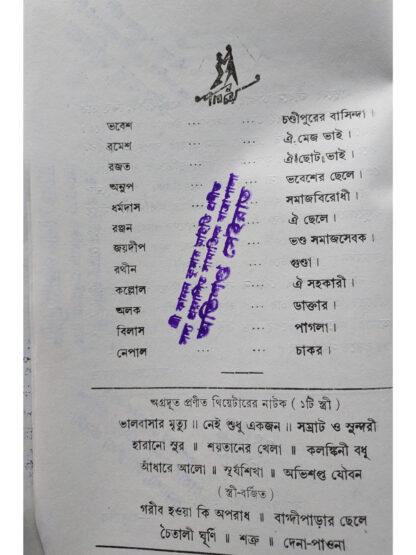 পরিচয়
ভবেশ ... ... চণ্ডীপুরের বাসিন্দা।
রমেশ ... ... ঐ মেজ ভাই।
রজত ... ... ঐ ছোট ভাই।
অনুপ ... ... ভবেশের ছেলে।
ধর্মদাস ... ... সমাজবিরোধী।
রঞ্জন ... ... ঐ ছেলে।
জয়দীপ ... ... ভণ্ড সমাজসেবক।
রথীন ... ... গুণ্ডা।
কল্লোল ... ... ঐ সহকারী।
অলক ... ... ডাক্তার।
বিলাস ... ... পাগলা।
নেপাল ... ... চাকর।
শ্রী কানন কুমার মাইতি প্রণীত
সদ্য প্রকাশিত সামাজিক যাত্রাপালা
অভিশপ্ত পেরিয়াড
অগ্রদূত প্রণীত থিয়েটারের নাটক (১টি স্ত্রী)
ভালবাসার মৃত্যু॥ নেই শুধু একজন॥ সম্রাট ও সুন্দরী
হারানো সুর ॥ শয়তানের খেলা ॥ কলঙ্কিনী বধূ
আঁধারে আলো ॥ সূর্যশিখা ॥ অভিশপ্ত যৌবন
(স্ত্রী-বর্জিত)
গরীব হওয়া কি অপরাধ ॥ বাগ্দীপাড়ার ছেলে
চৈতালী ঘূর্ণি ॥ শত্রু ॥ দেনা-পাওনা